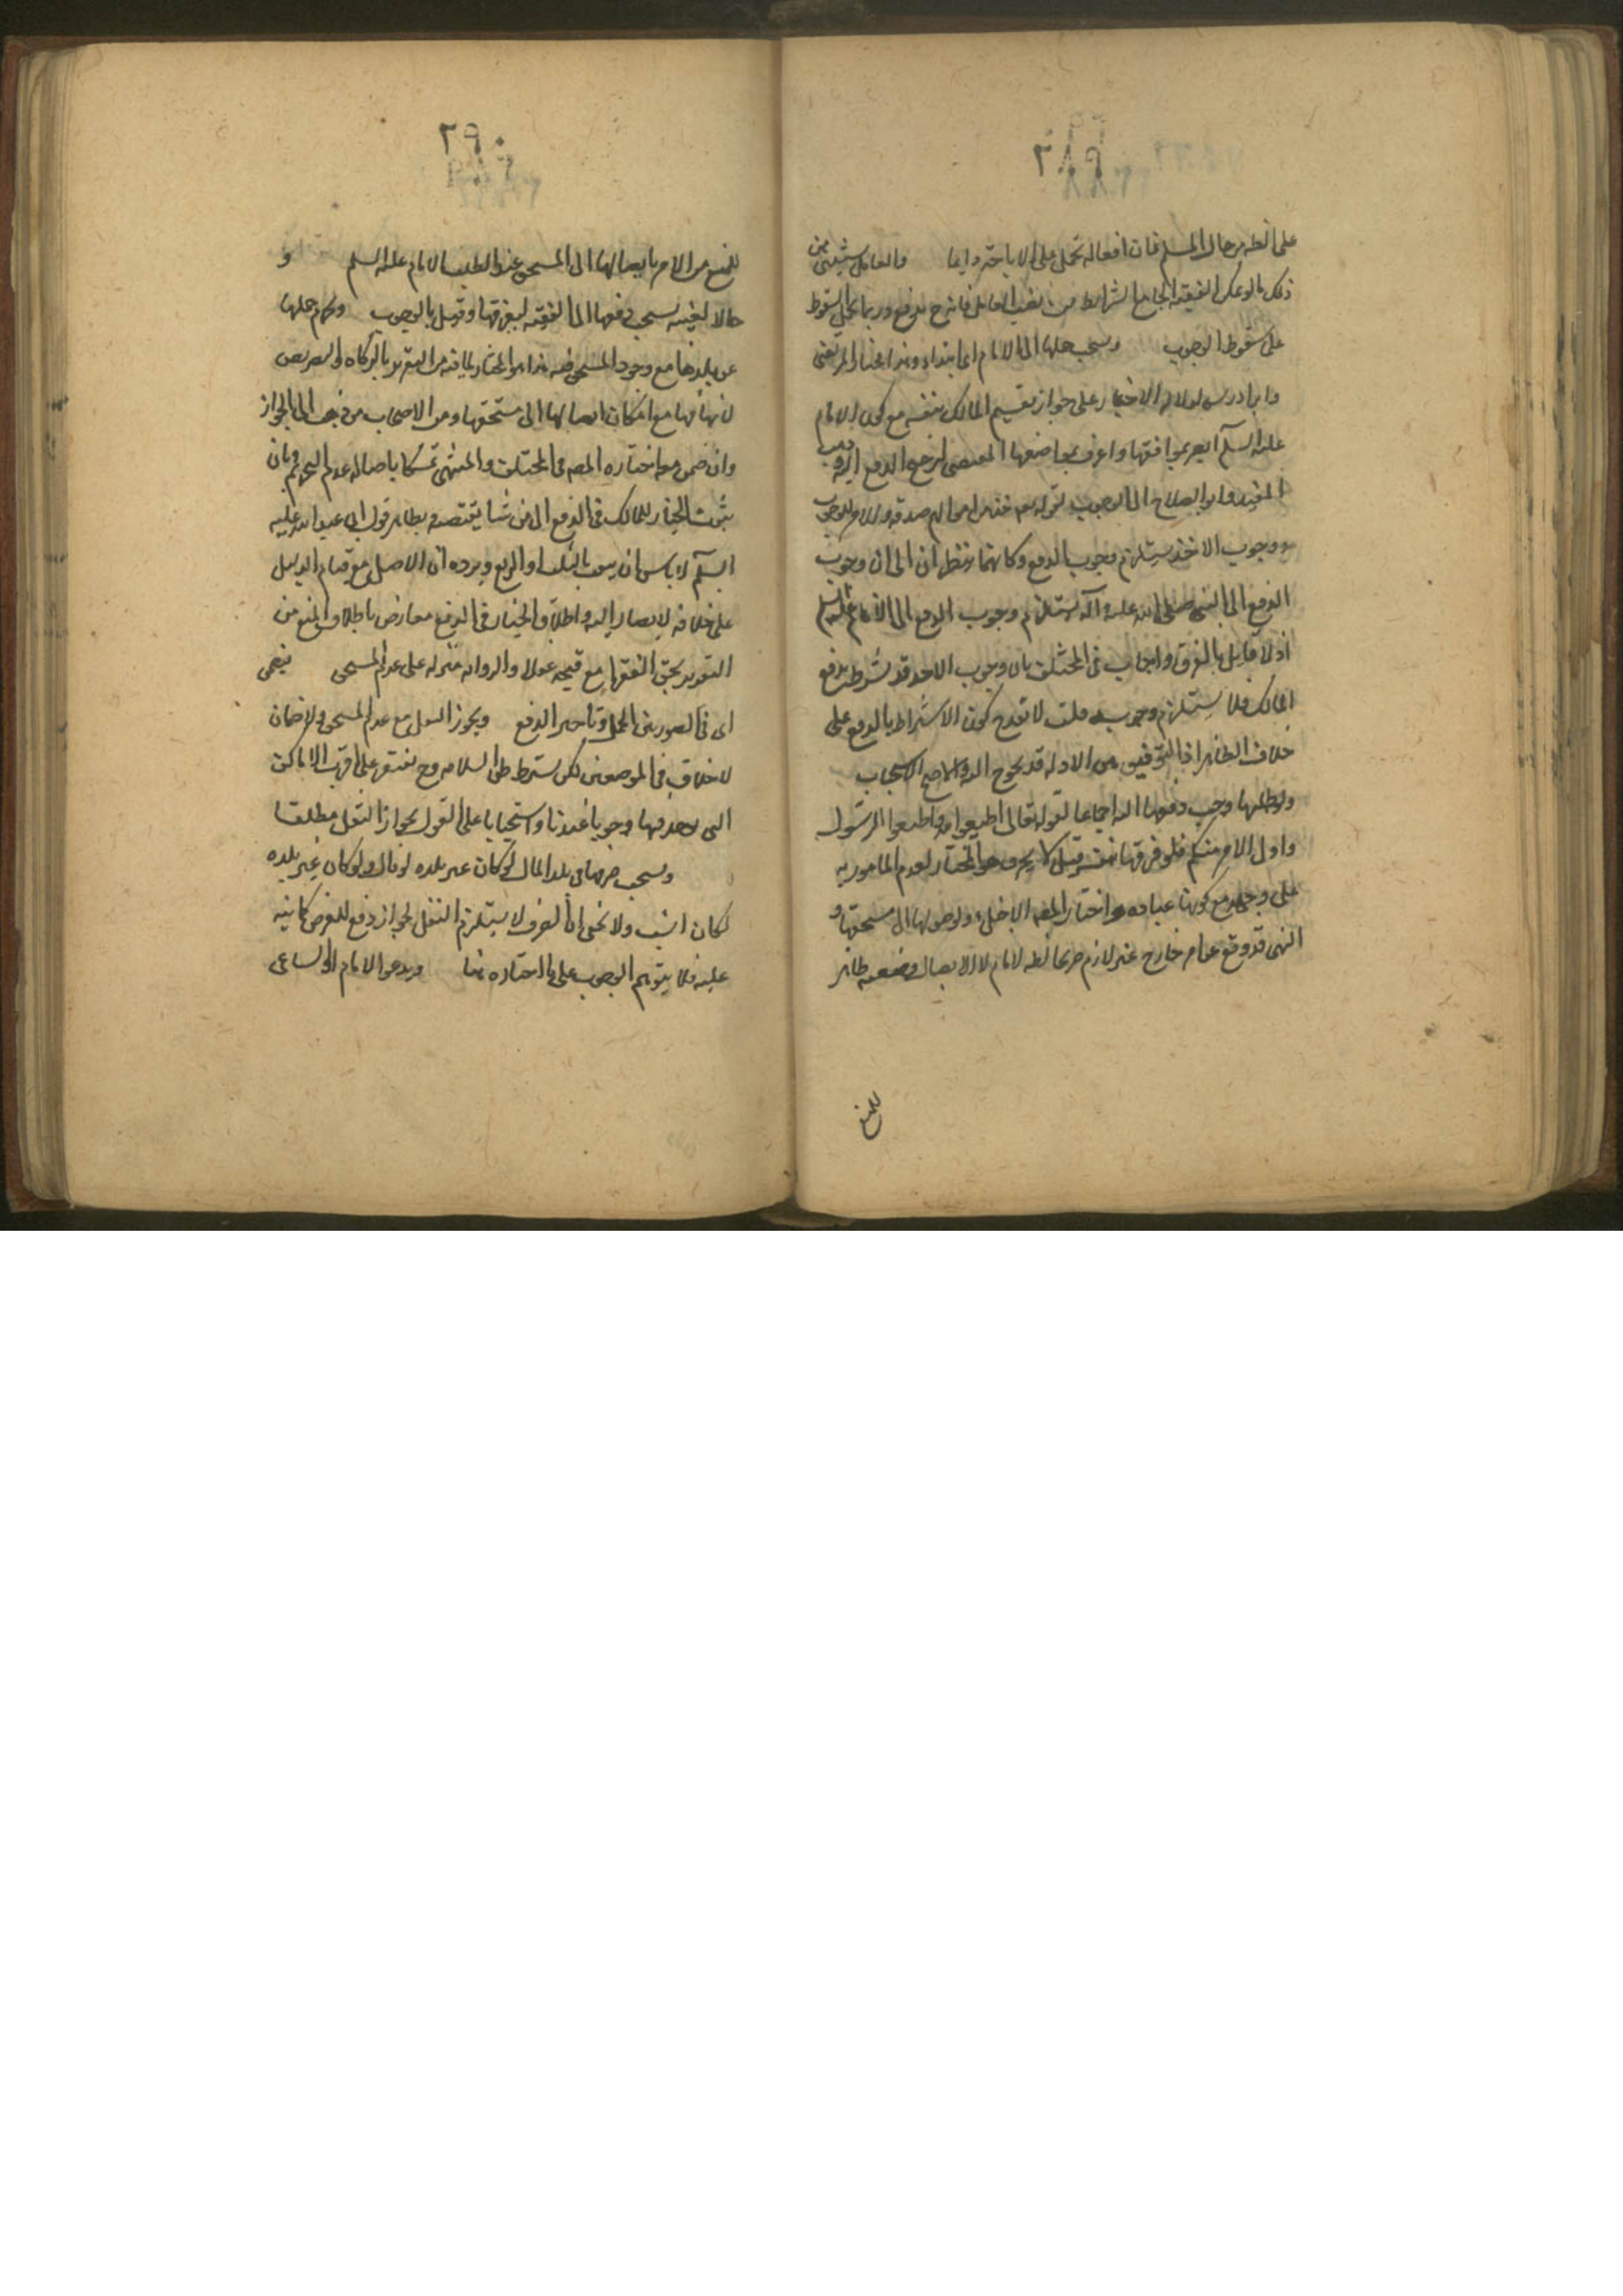 ٢٨٩
على الظاهر من حال المسلم فان افعاله تحمل على الاباحة دايما والعامل يستثنى من
ذلك بالو تمكن الفقيه الجامع الشرايط من نصب العامل فانه يدفع وربما تحمل السقوط
على سقوط الوجوب ويستحب حملها الى الامام ابتداء وهذا مختار المرتضى
وابن ادريس لدلالة الاخبار على جواز تقسيم المالك بنفسه مع كون الامام
عليه السلم ابصر بمواقعها واعرف بمواضعها المقتضى لترجيح الدفع اليه وذهب
المفيد وابو الصلاح الى الوجوب لقوله تعالى خذ من اموالهم صدقة والامر للوجوب
ووجوب الاخذ يستلزم وجوب الدفع وكانهما ينظران الى ان وجوب
الدفع الى النبى صلى الله عليه وآله يستلزم وجوب الدفع الى الامام عليه السلم
اذ لا قايل بالفرق واجاب فى المختلف بان وجوب الاخذ قد شرط بدفع
المالك فلا يستلزم وجوبه قلت لا يقدح كون الاشتراط بالدفع على
خلاف الظاهر اذ التوفيق بين الادلة قد يحوج اليه والاصح الاستحباب
ولو طلبها وجب دفعها اليه اجماعا لقوله تعالى اطيعوا الله واطيعوا الرسول
واولى الامر منكم فلو فرقها بنفسه قيل لا يجزى هو المختار لعدم المامور به
على وجهه مع كونها عبادة واختار المصه الاجزاء ولوصولها الى مستحقها و
النهى قد وقع عن امر خارج غير لازم هو مخالفه الامام لا الايصال وضعفه ظاهر
للمنع
٢٩٠
للمنع من الامر بايصالها الى المستحق عند طلب الامام عليه السلم و
حال الغيبه يستحب دفعها الى الفقيه ليفرقها وقيل بالوجوب ويحرم حملها
عن بلدها مع وجود المستحق فيه هذا هو المختار لما فيه من التغرير بالزكاة والتعريض
لاتهابها مع امكان ايصالها الى مستحقها ومن الاصحاب من ذهب الى الجواز
وان ضمن وهو اختاره المصه فى المختلف والمنتهى تمسكا باصالة عدم التحريم وبان
ثبوت الخيار للمالك فى الدفع الى من شاء يقتضيه وبظاهر قول ابى عبد الله عليه
السلم لا باس ان يبعث بالثلث او الربع ويرده ان الاصل مع قيام الدليل
على خلافه لا يصار اليه واطلاق الخيار فى الدفع معارض باطلاق المنع من
التغرير بحق الفقراء مع قبحه عقلا والرواية منزله على عدم المستحق فيضمن
اى فى الصورتين الحمل وتاخير الدفع ويجوز النقل مع عدم المستحق ولا ضمان
لا خلاف فى الموضعين لكن يشترط ظن السلامه وح يقتصر على اقرب الاماكن
التى يوجد فيها وجوبا عندنا واستحبابا على القول بجواز النقل مطلقا
ويستحب صرفها فى بلد المال لو كان غير بلده لو قال ولو كان غير بلده
لكان انسب ولا يخفى ان الصرف لا يستلزم النقل لجواز دفع العوض كما نبه
عليه فلا يتوهم الوجوب على ما اختاره هنا ويدعو الامام او الساعى